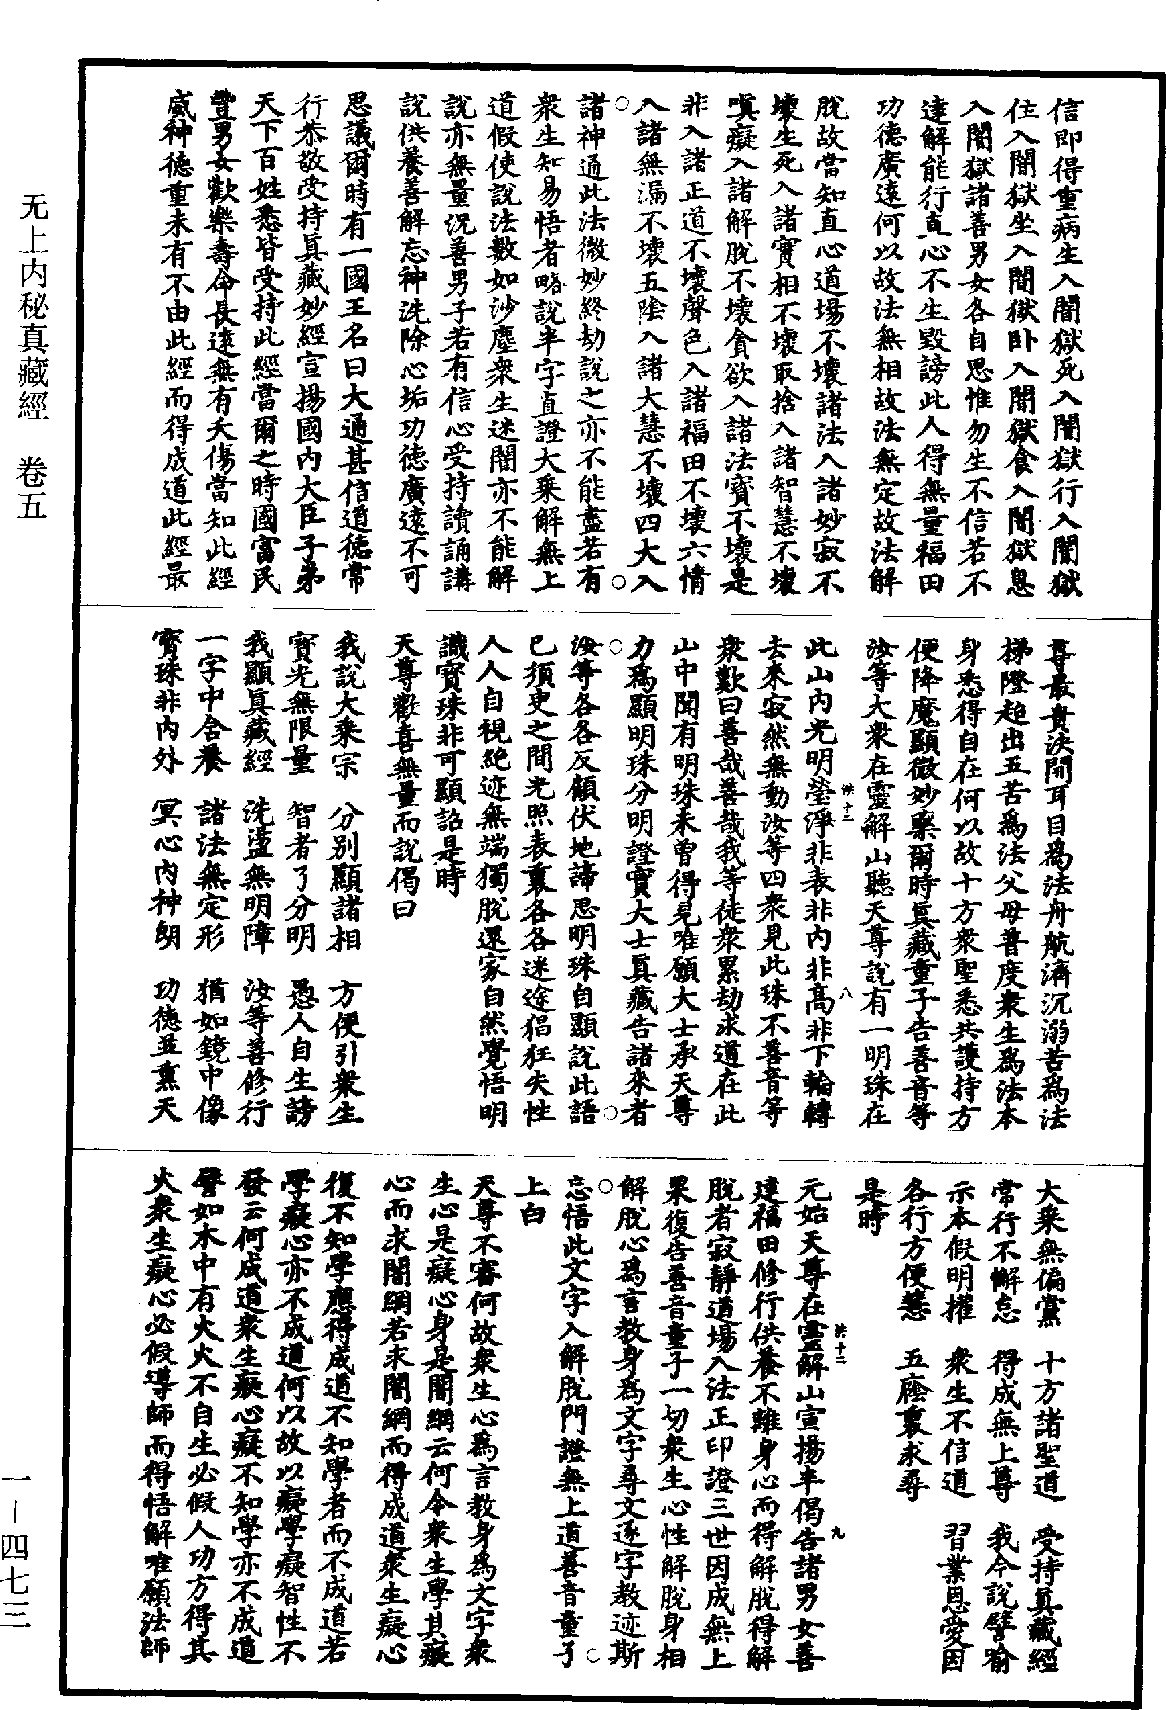 信即得重病生入闇獄死入闇獄行入闇獄
住入闇獄坐入闇獄卧入闇獄食入闇獄息
入闇獄諸善男女各自思惟勿生不信若不
達解能行直心不生毀謗此人得無量福田
功德廣遠何以故法無相故法無定故法解
脫故當知直心道場不壞諸法入諸妙寂不
壞生死入諸實相不壞取捨入諸智慧不壞
嗔癡入諸解脫不壞貪欲入諸法寶不壞是
非入諸正道不壞聲色入諸福田不壞六情
入諸無漏不壞五陰入諸大慧不壞四大入
諸神通此法微妙終劫說之亦不能盡若有
衆生知易悟者略說半字直證大乗解無上
道假使說法數如沙塵衆生迷闇亦不能解
說亦無量況善男子若有信心受持讀誦講
說供養善解忘神洗除心垢功德廣遠不可
思議爾時有一國王名曰大通甚信道德常
行恭敬受持真藏妙經宣揚國內大臣子弟
天下百姓悉皆受持此經當爾之時國富民
豐男女歡樂壽命長遠無有夭傷當知此經
威神德重未有不由此經而得成道此經最
尊最貴決開耳目爲法舟航濟沉溺苦爲法
梯隥超出五苦爲法父母普度衆生爲法本
身悉得自在何以故十方衆聖悉共護持方
便降魔顯微妙藥爾時真藏童子告善音等
汝等大衆在靈解山聽天尊說有一明珠在
此山內光明瑩淨非表非內非高非下輪轉
去來寂然無動汝等四衆見此珠不善音等
衆歎曰善哉善哉我等徒衆累劫求道在此
山中聞有明珠未曾得見唯願大士承天尊
力爲顯明珠分明證實大士真藏告諸來者
汝等各各反顧伏地諦思明珠自顯說此語
已須臾之間光照表裏各各迷途猖狂失性
人人自視絕迹無端獨脫還家自然覺悟明
識寶珠非可顯詺是時
天尊歡喜無量而說偈曰
我說大乗宗　分別顯諸相　方便引衆生
寶光無限量　智者了分明　愚人自生謗
我顯真藏經　洗盪無明障　汝等善修行
一字中含養　諸法無定形　猶如鏡中像
寶珠非內外　冥心內神朗　功德並熏天
大衆無偏黨　十方諸聖道　受持真藏經
常行不懈怠　得成無上尊　我今說譬喻
示本假明權　衆生不信道　習業恩愛因
各行方便慧　五廕裏求尋
是時
元始天尊在靈解山宣揚半偈告諸男女善
達福田修行供養不離身心而得解脫得解
脫者寂靜道場入法正印證三世因成無上
果復告善音童子一切衆生心性解脫身相
解脫心爲言教身爲文字尋文逐字教迹斯
忘悟此文字入解脫門證無上道善音童子
上白
天尊不審何故衆生心爲言教身爲文字衆
生心是癡心身是闇網云何令衆生學其癡
心而求闇網若求闇網而得成道衆生癡心
復不知學應得成道不知學者而不成道若
學癡心亦不成道何以故以癡學癡智性不
發云何成道衆生癡心癡不知學亦不成道
譬如木中有火火不自生必假人功方得其
火衆生癡心必假導師而得悟解唯願法師
无上内秘真藏經　卷五
一－四七三